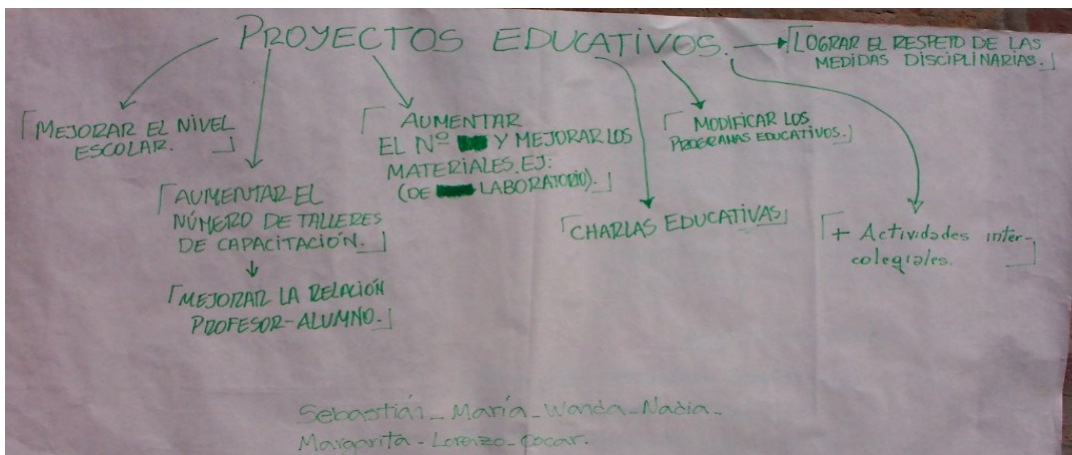 PROYECTOS EDUCATIVOS.
LOGRAR EL RESPETO DE LAS
MEDIDAS DISCIPLINARIAS.
MEJORAR EL NIVEL
ESCOLAR.
AUMENTAR EL
NÚMERO DE TALLERES
DE CAPACITACIÓN.
MEJORAR LA RELACIÓN
PROFESOR-ALUMNO.
AUMENTAR
EL Nº Y MEJORAR LOS
MATERIALES. EJ:
(DE LABORATORIO).
CHARLAS EDUCATIVAS
MODIFICAR LOS
PROGRAMAS EDUCATIVOS.
+ Actividades inter-
colegiales.
Sebastián - María - Wanda - Nadia -
Margarita - Lorenzo - Oscar.